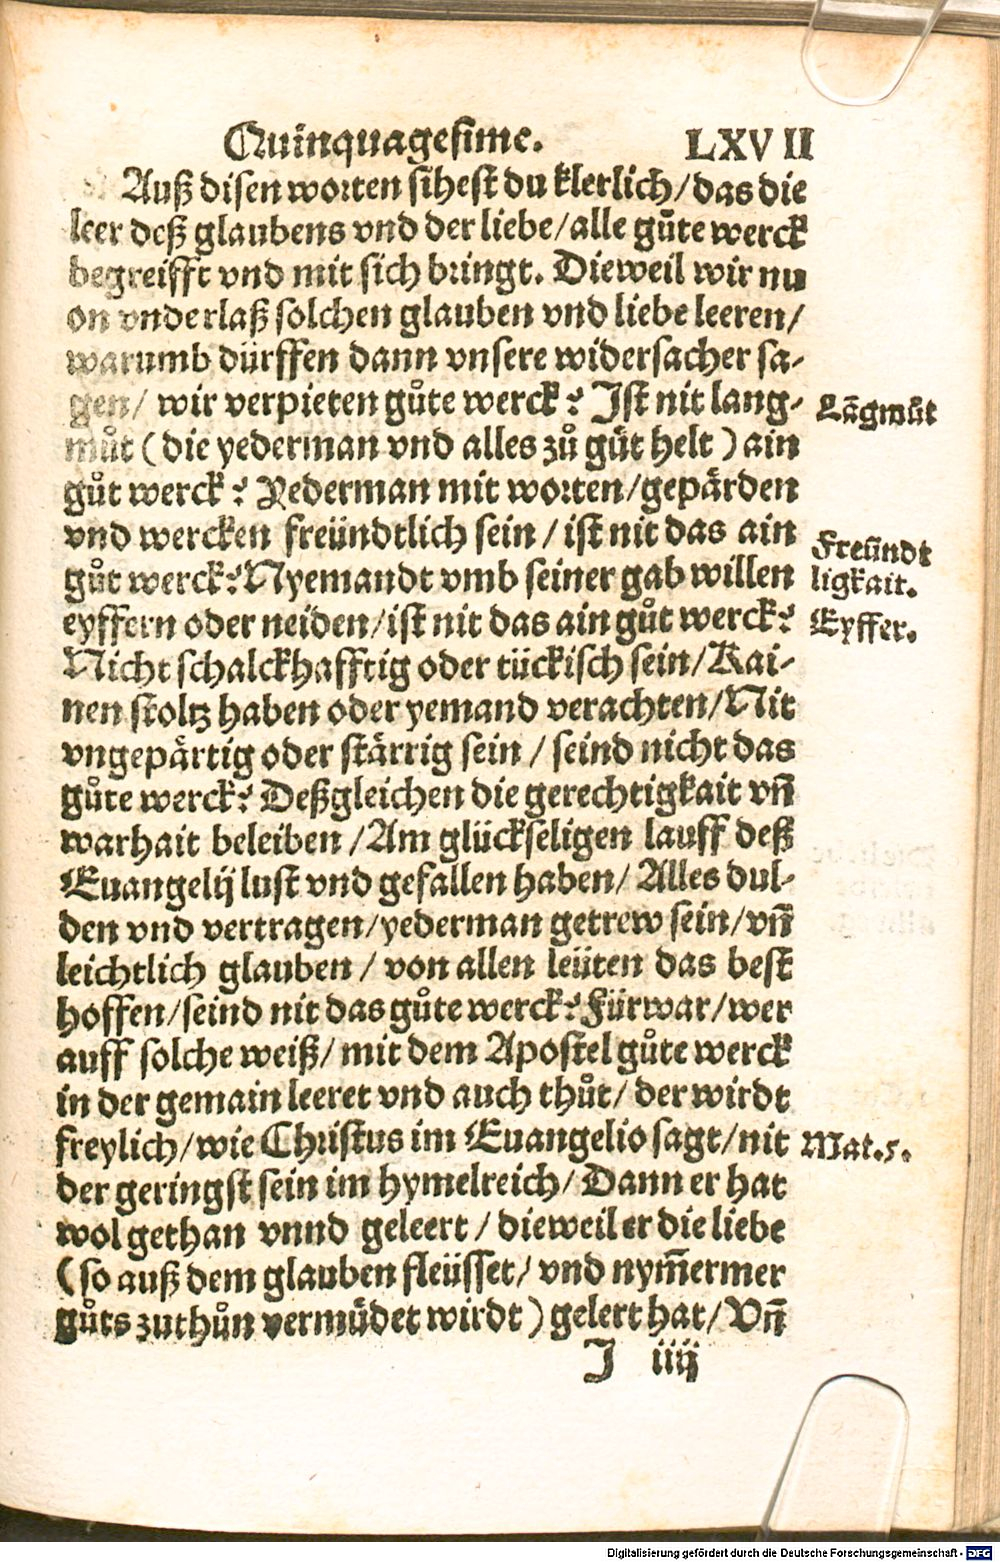 Quinquagesime. LXVII
Auß disen worten sihest du klerlich/das die
leer deß glaubens vnd der liebe/alle gůte werck
begreifft vnd mit sich bringt. Dieweil wir nu
on vnderlaß solchen glauben vnd liebe leeren/
warumb dürffen dann vnsere widersacher sa-
gen/ wir verpieten gůte werck? Ist nit lang-
Lãgmůt
můt (die yederman vnd alles zů gůt helt) ain
gůt werck? Yederman mit worten/gepärden
vnd wercken freündtlich sein/ist nit das ain
Freündt
gůt werck? Nyemandt vmb seiner gab willen
ligkait.
eyffern oder neiden/ist nit das ain gůt werck?
Eyffer.
Nicht schalckhafftig oder tückisch sein/Kai-
nen stoltz haben oder yemand verachten/Nit
vngepärtig oder stärrig sein/seind nicht das
gůte werck? Deßgleichen die gerechtigkait vñ
warhait beleiben/Am glückseligen lauff deß
Euangelij lust vnd gefallen haben/Alles dul-
den vnd vertragen/yederman getrew sein/vñ
leichtlich glauben/von allen leüten das best
hoffen/seind nit das gůte werck? Fürwar/wer
auff solche weiß/mit dem Apostel gůte werck
in der gemain leeret vnd auch thůt/der wirdt
freylich/wie Christus im Euangelio sagt/nit
Mat.5.
der geringst sein im hymelreich/Dann er hat
wol gethan vnnd geleert/dieweil er die liebe
(so auß dem glauben fleüsset/vnd nym̃ermer
gůts zuthůn vermüdet wirdt) gelert hat/Vñ
J iiij
Digitalisierung gefördert durch die Deutsche Forschungsgemeinschaft - DFG